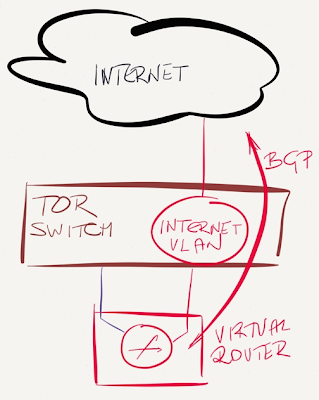 INTERNET
BGP
TOR
SWITCH
INTERNET
VLAN
VIRTUAL
ROUTER